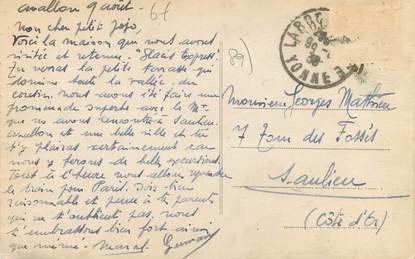 avallon 9 août.
61
Mon cher petit Jojo,
Voici la maison que nous avons
visitée et retenue.
Tu verras la petite terrasse qui
domine toute la vallée du
cousin. nous avons été faire une
promenade superbe avec le Mr
que ns avons rencontré à Saulieu.
avallon est une belle ville et tu
t'y plairas certainement car
nous y ferons de belles excursions.
Tout à l'heure nous allons reprendre
le train pour Paris. Sois bien
raisonnable et pense à tes parents
qui ne t'oublient pas. nous
t'embrassons bien fort ainsi
que mémé. Marcel Germaine
89
Monsieur Georges Mathieu
7 rue des Fossés
Saulieu
(Côte d'Or)
YONNE